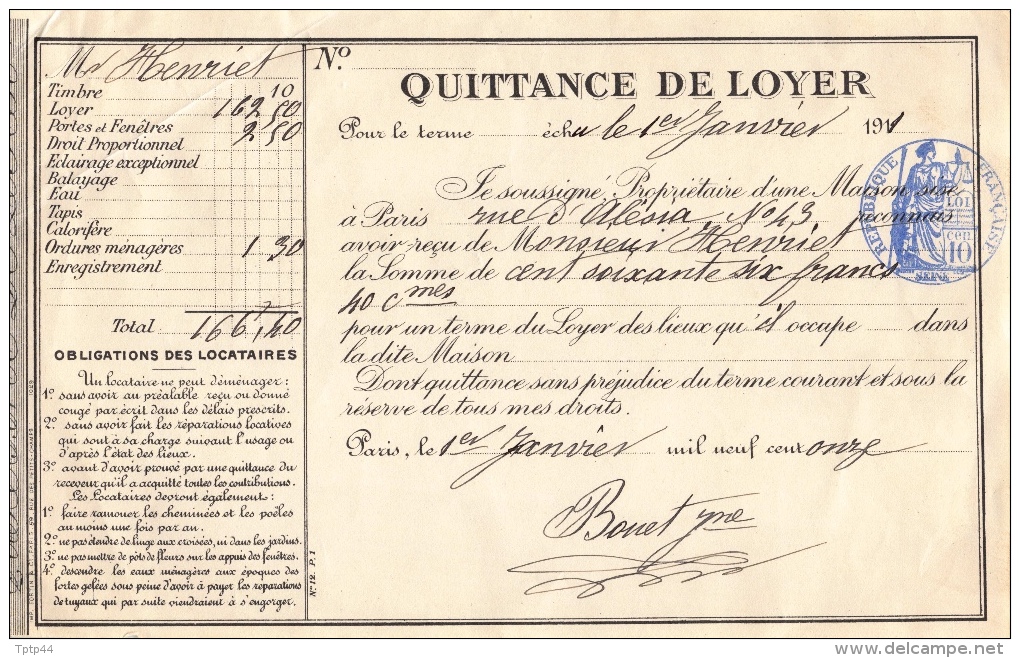 Mr Henriet
Timbre 10
Loyer 162,50
Portes et Fenêtres 2,50
Droit Proportionnel
Eclairage exceptionnel
Balayage
Eau
Tapis
Calorifère
Ordures ménagères 1.30
Enregistrement
Total 166,40
OBLIGATIONS DES LOCATAIRES
Un locataire ne peut déménager:
1º sans avoir au préalable reçu ou donné
congé par écrit dans les délais prescrits.
2º sans avoir fait les réparations locatives
qui sont à sa charge suivant l'usage ou
d'après l'état des lieux.
3º avant d'avoir prouvé par une quittance du
receveur qu'il a acquitté toutes les contributions.
Les Locataires devront également:
1º faire ramoner les cheminées et les poêles
au moins une fois par an.
2º ne pas étendre de linge aux croisées, ni dans les jardins.
3º ne pas mettre de pôts de fleurs sur les appuis des fenêtres.
4º descendre les eaux ménagères aux époques des
fortes gelées sous peine d'avoir à payer les réparations
de tuyaux qui par suite viendraient à s'engorger.
Nº 12. P. 1
Nº
QUITTANCE DE LOYER
Pour le terme échu le 1er Janvier 1911
Je soussigné, Propriétaire d'une Maison sise
à Paris rue d'Alésia, No 43 reconnais
avoir reçu de Monsieur Henriet
la Somme de cent soixante six francs
40 cmes
pour un terme du Loyer des lieux qu'il occupe dans
la dite Maison
Dont quittance sans préjudice du terme courant et sous la
réserve de tous mes droits.
Paris, le 1er Janvier mil neuf cent onze
Bouet
RÉPUBLIQUE FRANÇAISE
LOI
cen
10
SEINE
Tptp44
delcampe.net